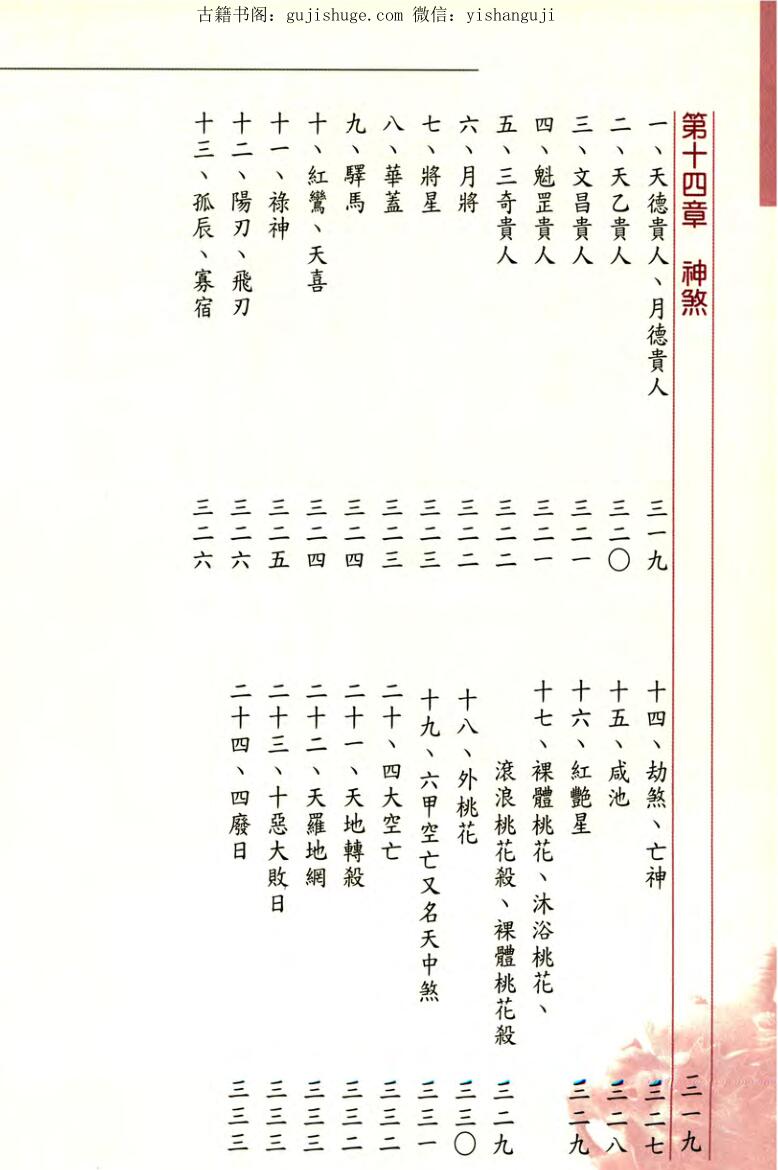 古籍书阁：gujishuge.com 微信：yishanguji
第十四章　神煞　二一九
一、天德貴人、月德貴人　三一九
二、天乙貴人　三二〇
三、文昌貴人　三二一
四、魁罡貴人　三二一
五、三奇貴人　三二二
六、月將　三二二
七、將星　三二三
八、華蓋　三二三
九、驛馬　三二四
十、紅鸞、天喜　三二四
十一、祿神　三二五
十二、陽刃、飛刃　三二六
十三、孤辰、寡宿　三二六
十四、劫煞、亡神　三二七
十五、咸池　三二八
十六、紅艷星　三二九
十七、裸體桃花、沐浴桃花、
滾浪桃花殺、裸體桃花殺　三二九
十八、外桃花　三三〇
十九、六甲空亡又名天中煞　三三一
二十、四大空亡　三三二
二十一、天地轉殺　三三二
二十二、天羅地網　三三三
二十三、十惡大敗日　三三三
二十四、四廢日　三三三